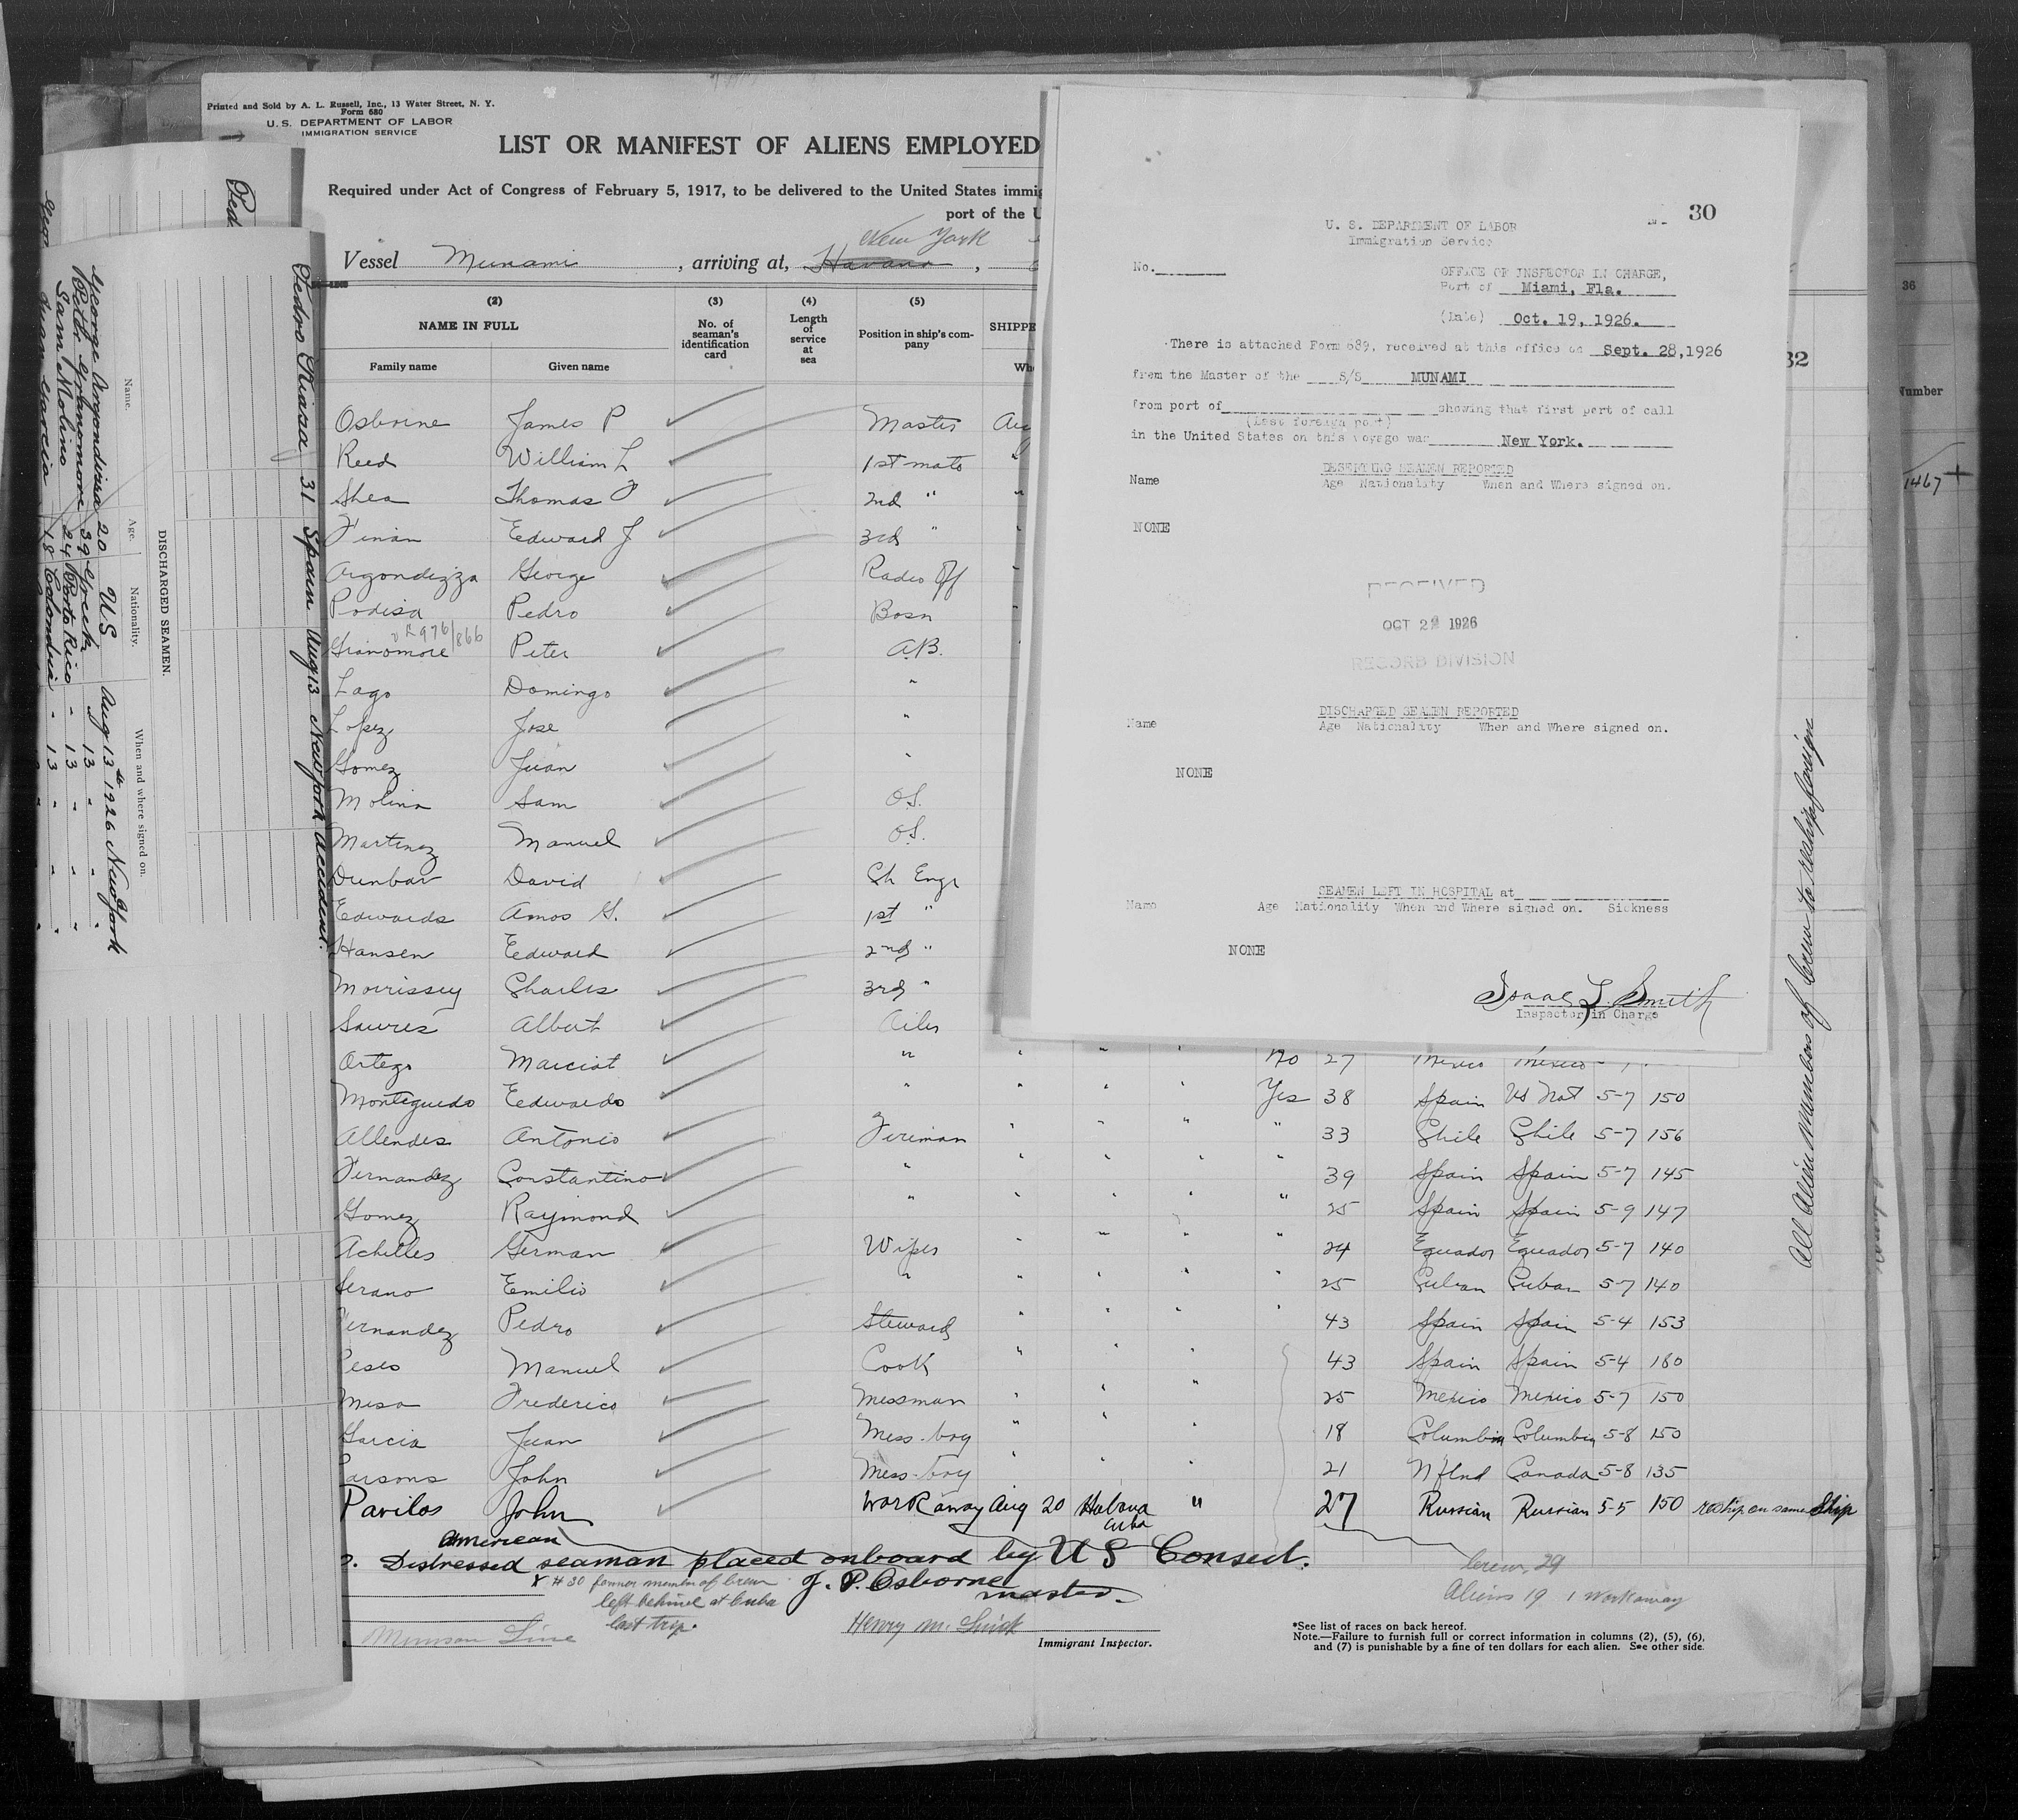 Printed and Sold by A. L. Russell, Inc., 13 Water Street, N. Y.
Form 680
U. S. DEPARTMENT OF LABOR
IMMIGRATION SERVICE
LIST OR MANIFEST OF ALIENS EMPLOYED
Required under Act of Congress of February 5, 1917, to be delivered to the United States immig
port of the U
New York
Vessel Munami , arriving at, Havana ,
(2) (3) (4) (5)
NAME IN FULL No. of seaman's identification card Length of service at sea Position in ship's company SHIPPE
Family name Given name Wh
Osborne James P Master Au
Reed William L 1st mate "
Shea Thomas F 2nd " "
Finan Edward J 3rd "
Argondizza George Radio Off
Podisa Pedro Bosn
976/866
Granomore Peter A.B.
Lago Domingo "
Lopez Jose "
Gomez Juan "
Molina Sam O.S.
Martinez Manuel O.S.
Dunbar David Ch Engr
Edwards Amos G. 1st "
Hansen Edward 2nd "
Morrissey Charles 3rd "
Saures Albert Oiler
Ortega Marciat " " " " No 27 Mexico Mexico
Monteguedo Eedwardo " " " " Yes 38 Spain US Nat 5-7 150
Allendes Antonio Fireman " " " " 33 Chile Chile 5-7 156
Fernandez Constantino " " " " " 39 Spain Spain 5-7 145
Gomez Raymond " " " " " 25 Spain Spain 5-9 147
Achilles German Wiper " " " " 24 Equador Equador 5-7 140
Serano Emilio " " " " " 25 Cuban Cuban 5-7 140
ernandez Pedro Steward " " " " 43 Spain Spain 5-4 153
Manuel Cook " " " 43 Spain Spain 5-4 160
Mesa Frederico Messman " " " 25 Mexico Mexico 5-7 150
Garcia Juan Mess-boy " " " 18 Columbia Columbia 5-8 150
arsons John Mess-boy " " 21 N'flnd Canada 5-8 135
Pavilos John Workaway Aug 20 Habana Cuba " 27 Russian Russian 5-5 150 reship on same Ship
American
Distressed seaman placed onboard by U S Consul.
J. P. Osborne
master
X #30 former member of crew
left behind at Cuba
last trip.
Crew 29
Aliens 19 1 workaway
Munson Line
Immigrant Inspector.
*See list of races on back hereof.
Note.—Failure to furnish full or correct information in columns (2), (5), (6),
and (7) is punishable by a fine of ten dollars for each alien. See other side.
All Alien Members of Crew to reship foreign
30
U. S. DEPARTMENT OF LABOR
Immigration Service
No.
OFFICE OF INSPECTOR IN CHARGE,
Port of Miami, Fla.
(Date) Oct. 19, 1926.
There is attached Form 689, received at this office on Sept. 28,1926
from the Master of the S/S MUNAMI
from port of showing that first port of call
(Last foreign port)
in the United States on this voyage was New York.
DESERTING SEAMEN REPORTED
Name Age Nationality When and Where signed on.
NONE
RECEIVED
OCT 22 1926
RECORD DIVISION
DISCHARGED SEAMEN REPORTED
Name Age Nationality When and Where signed on.
NONE
SEAMEN LEFT IN HOSPITAL at
Name Age Nationality When and Where signed on. Sickness
NONE
Isaac L. Smith
Inspector in Charge
Pedro 31 Spain Aug 13 New York Accident.
DISCHARGED SEAMEN.
Name. Age. Nationality. When and where signed on.
George Argondizza 20 U S Aug 13th 1926 New York
Peter Granomore 39 Greek " 13 " "
Sam Molino 24 Porto Rico " 13 " "
Juan Garcia 18 Colombia " 13 " "
32
36
Number
1467